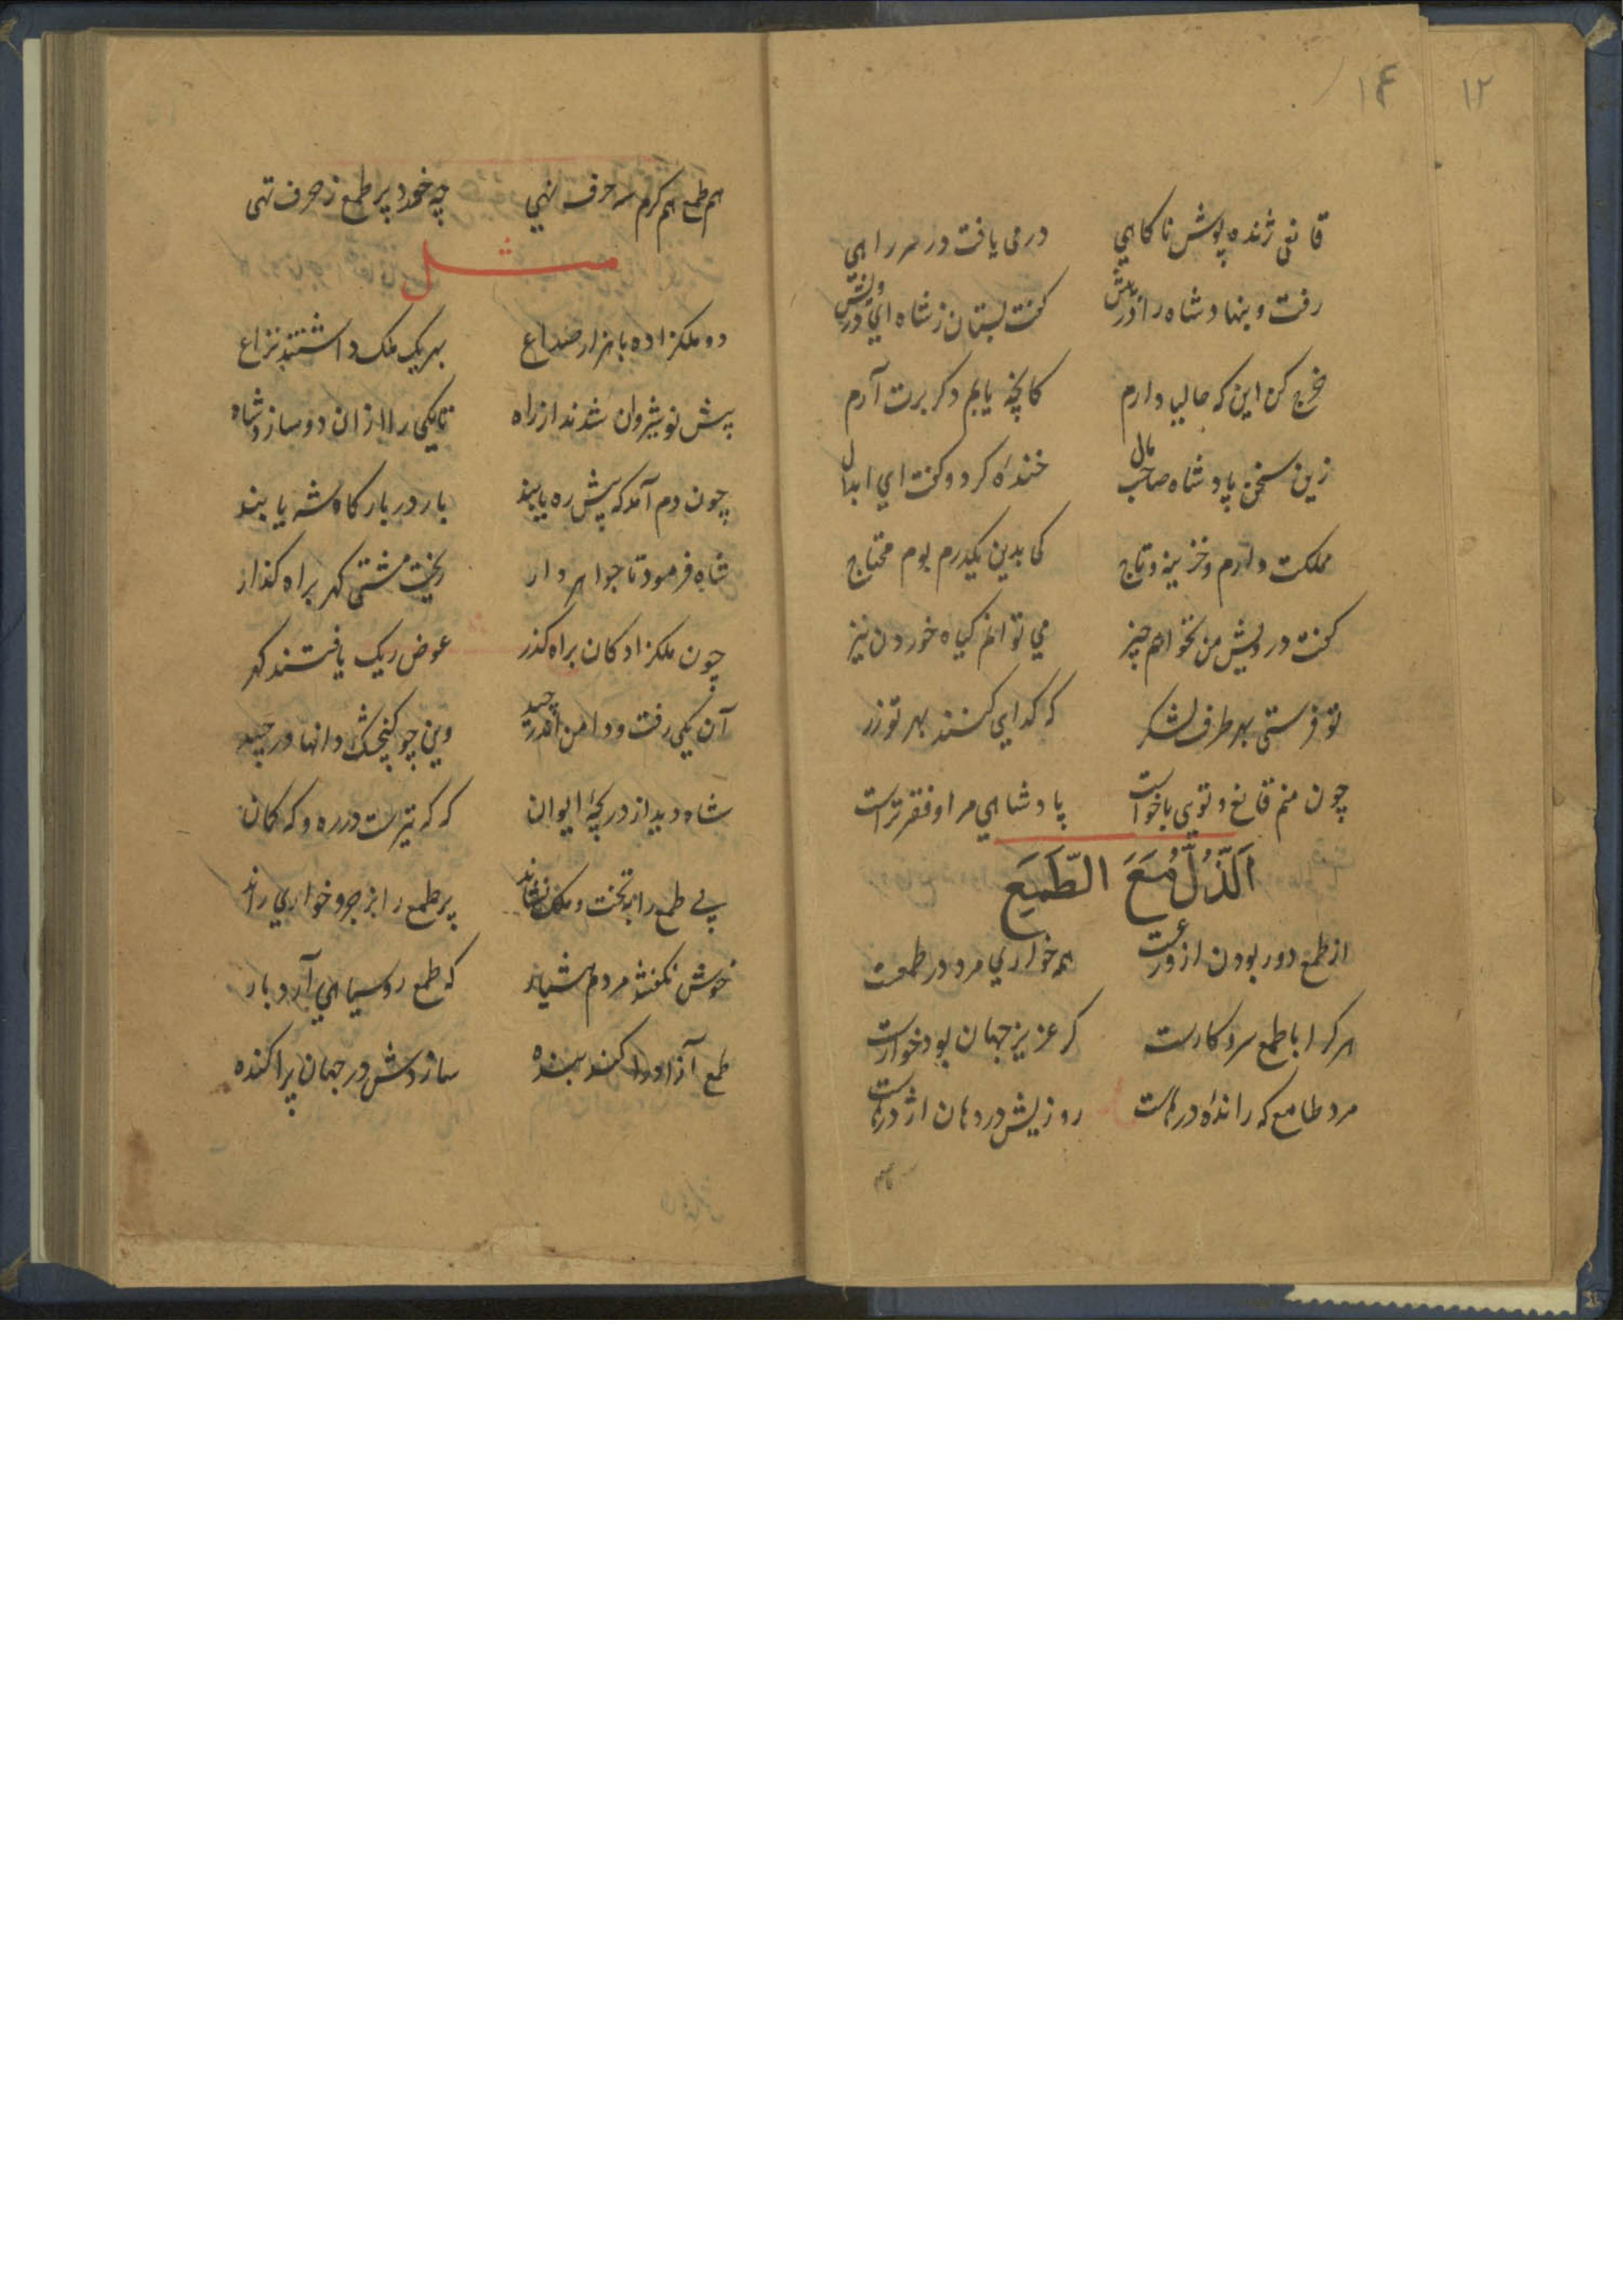 ۱۲
۱۴
قانعی ژنده پوش ناکاهی درمی یافت در سر راهی
رفت و بنهاد شاه را در پیش گفت بستان ز شاه ای درویش
خرج کن این که حالیا دارم کانچه یابم دکر برت آرم
زین سخن پادشاه صاحب مال خنده کرد و گفت ای ابدال
مملکت دارم و خزینه و تاج کی بدین یکدرم بوم محتاج
گفت درویش من نخواهم چیز می توانم کیاه خوردن نیز
تو فرستی بهر طرف لشکر که کدایی کنند بهر تو زر
چون منم قانع و تویی باخواست پادشاهی مرا و فقر تراست
اَلذُّلُّ مَعَ الطَّمَعِ
از طمع دور بودن از ورعست همه خواری مرد در طمعست
هر کرا با طمع سر و کارست کر عزیز جهان بود خوارست
مرد طامع که رانده درهاست روزیش در دهان اژدرهاست
هم طمع هم کرم سه حرف نهی چه خورد پر طمع ز حرف تهی
مثل
دو ملکزاده با هزار صداع بهر یک ملک داشتند نزاع
پیش نوشیروان شدند از راه تا یکی را از آن دو سازد شاه
چون دم آمد که پیش ره یابند بار در بارکاه شه یابند
شاه فرمود تا جواهردار ریخت مشتی کهر براه کذار
چون ملکزادکان براه کذر عوض ریک یافتند کهر
آن یکی رفت و دامن اندر چید وین چو کنجشک دانها در چید
شاه دید از دریچهٔ ایوان که که تیرست در ره و که کمان
بی طمع را به تخت و ملک نشاند پر طمع را بزجر و خواری راند
خوش نکفتند مردم هشیار که طمع روسیاهی آرد بار
طمع آزاد را کند بنده سازدش در جهان پراکنده